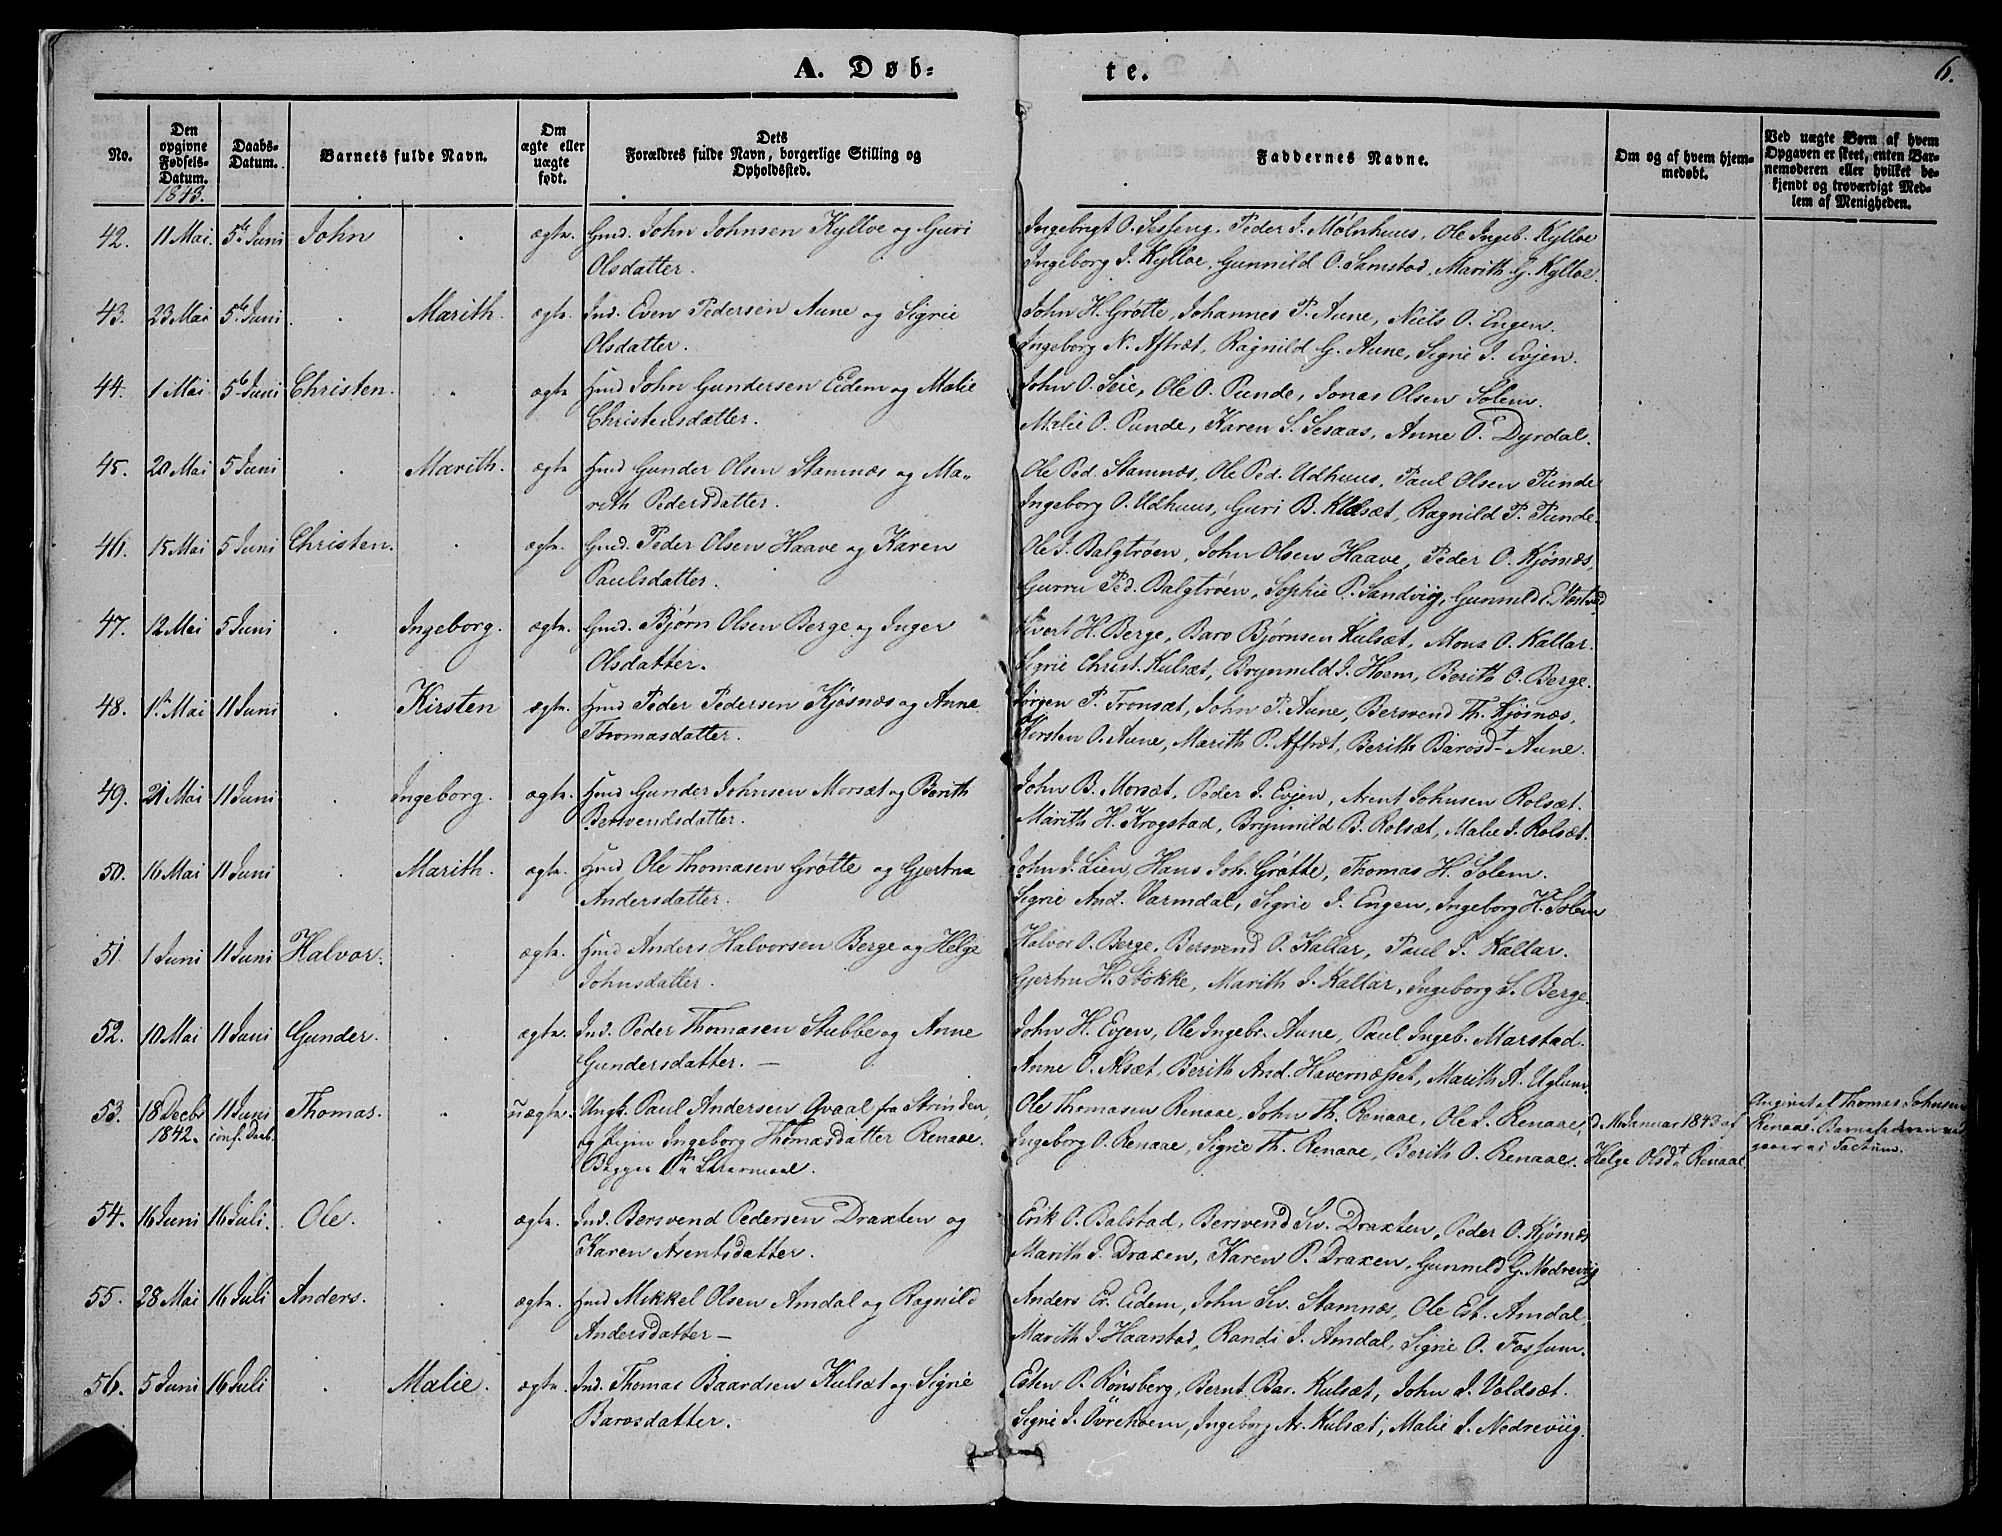 A. Døb=
te.
6.
No.
Den opgivne Fødsels-Datum.
1843.
Daabs-Datum.
Barnets fulde Navn.
Om ægte eller uægte født.
Dets Forældres fulde Navn, borgerlige Stilling og Opholdssted.
Faddernes Navne.
Om og af hvem hjemmedøbt.
Ved uægte Børn af hvem Opgaven er skeet, enten Barnemoderen eller hvilket bekjendt og troværdigt Medlem af Menigheden.
42. 11 Mai. 5te Juni John . ægte. Gmd. John Johnsen Kylloe og Guri
Olsdatter.
Ingebrigt O. Sesseng. Peder J. Mølnhuus, Ole Ingeb. Kylloe
Ingeborg J. Kylloe, Gunnild O. Samstad, Marith G. Kylloe.
43. 23 Mai 5te Juni . Marith. ægte. Ind. Even Pedersen Aune og Sigrie
Olsdatter.
John H. Grøtte, Johannes P. Aune, Niels O. Engen.
Ingeborg N. Aftræt, Ragnild G. Aune, Sigrie J. Evjen.
44. 1 Mai 5te Juni Christen. . ægte Hmd John Gundersen Eidem og Malie
Christensdatter.
John O. Seie, Ole O. Punde, Jonas Olsen Solem.
Malie O. Punde, Karen S. Sesaas, Anne O. Dyrdal.
45. 20 Mai 5 Juni . Marith. ægte Hmd Gunder Olsen Stamnæs og Ma-
rith Pedersdatter.
Ole Ped. Stamnæs, Ole Ped. Udhuus, Paul Olsen Punde
Ingeborg O. Udhuus, Guri B. Kulsæt, Ragnild P. Punde.
46. 15 Mai 5 Juni Christen. . ægte. Gmd. Peder Olsen Haave og Karen
Paulsdatter.
Ole J. Balgtrøen, John Olsen Haave, Peder O. Kjøsnæs,
Gurru Ped. Balgtrøen, Sophie P. Sandvig, Gunnild E.
47. 12 Mai 5 Juni . Ingeborg. ægte. Gmd. Bjørn Olsen Berge og Inger
Olsdatter.
Sivert H. Berge, Baro Bjørnsen Kulsæt, Mons O. Kallar.
Sigrie Christ. Kulsæt, Brynnild J. Hoem, Berith O. Berge.
48. 1te Mai 11 Juni . Kirsten ægte. Hmd Peder Pedersen Kjøsnæs og Anne
Thomasdatter.
Jørgen P. Tronsæt, John P. Aune, Bersvend Th. Kjøsnæs,
Kirsten O. Aune, Marith P. Aftræt, Berith Barosdt. Aune.
49. 21 Mai 11 Juni . Ingeborg. ægte. Hmd Gunder Johnsen Morsæt og Berith
Bersvendsdatter.
John B. Morsæt, Peder J. Evjen, Arent Johnsen Rolsæt.
Marith H. Krogstad, Brynnild B. Rolsæt, Malie J. Rolsæt.
50. 16 Mai 11 Juni . Marith. ægte. Hmd Ole Thomasen Grøtte og Gjertru
Andersdatter.
John J. Lien, Hans Joh. Grøtte, Thomas H. Solem.
Sigrie And. Varmdal, Sigrie J. Engen, Ingeborg H. Solem
51. 1 Juni 11 Juni Halvor. . ægte. Hmd Anders Halvorsen Berge og Helge
Johnsdatter.
Halvor O. Berge, Bersvend O. Kallar, Paul J. Kallar.
Gjertru H. Stokke, Marith J. Kallar, Ingeborg S. Berge.
52. 10 Mai 11 Juni Gunder. . ægte. Ind. Peder Thomasen Stubbe og Anne
Gundersdatter. —
John H. Evjen, Ole Ingebr. Aune, Paul Ingeb. Marstad.
Anne O. Alsæt, Berith And. Havernæsset, Marith A. Uglum.
53. 18 Decbr 1842. 11 Juni conf. Daab. Thomas. . uægte. Ungk. Paul Andersen Qvaal fra Strinden,
og Pigen Ingeborg Thomasdatter Renaae.
Begges
Ole Thomasen Renaae, John Th. Renaae, Ole J. Renaae,
Ingeborg O. Renaae, Sigrie Th. Renaae, Berith O. Renaae.
d. 16 Januar 1843 af
Helge Olsdt Renaae
Angivet af Thomas Johnsen
Renaae. Barnefaderen ved-
gaaer ei Factum.
54. 16 Juni 16 Juli. Ole. . ægte. Ind. Bersvend Pedersen Draxten og
Karen Arentsdatter.
Erik O. Balstad, Bersvend Siv. Draxten, Peder O. Kjøsnæs
Marith J. Draxen, Karen P. Draxen, Gunnild G. Nedreviig
55. 28 Mai 16 Juli Anders. . ægte. Hmd Mikkel Olsen Amdal og Ragnild
Andersdatter —
Anders Er. Eidem, John Siv. Stamnæs, Ole Est. Amdal
Marith J Haarstad, Randi J. Amdal, Sigrie O. Fossum.
56. 5 Juni 16 Juli . Malie. ægte. Ind. Thomas Baardsen Kulsæt og Sigrie
Barosdatter.
Esten P. Rønsberg, Bernt Bar. Kulsæt, John J. Voldsæt.
Sigrie J. Øvrehoem, Ingeborg Ar. Kulsæt, Malie J. Nedreviig.